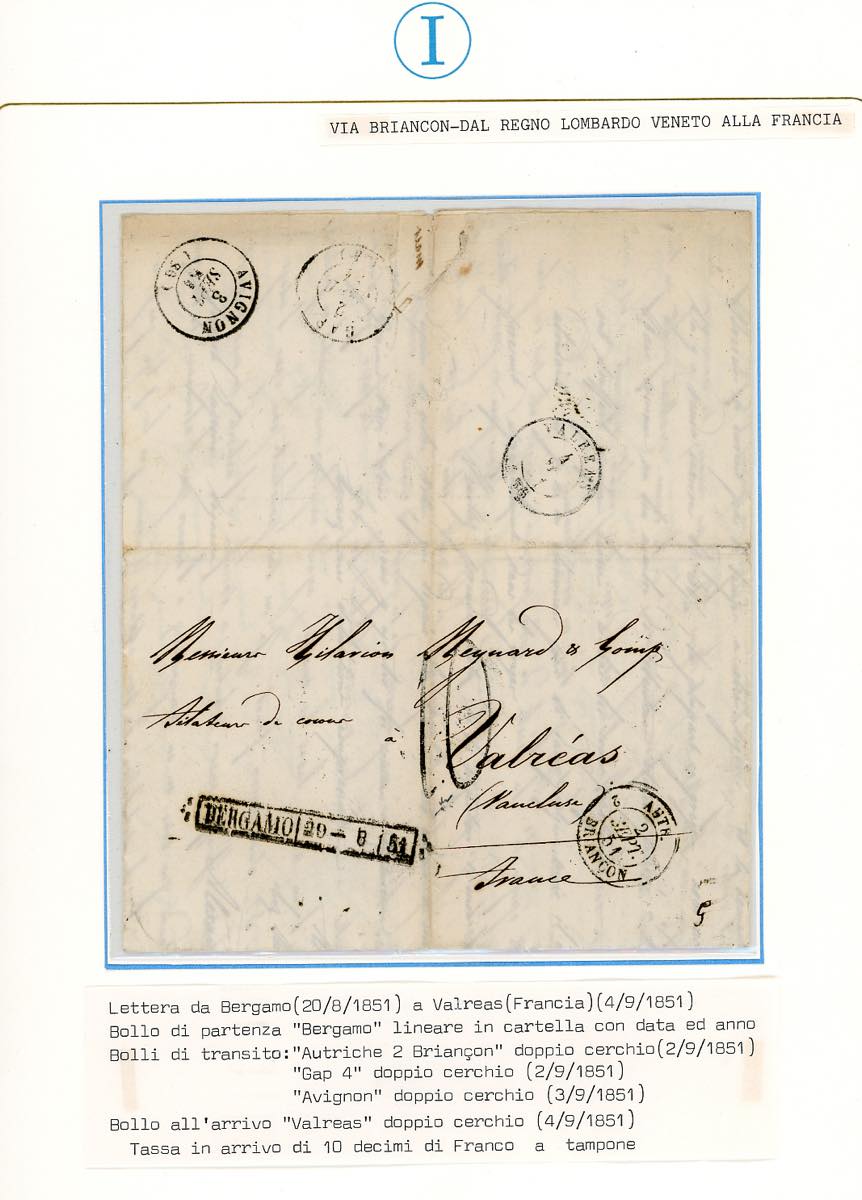 I
VIA BRIANCON-DAL REGNO LOMBARDO VENETO ALLA FRANCIA
AVIGNON
3
SEPT
(86)
GAP
2
VALREAS
4
Messieurs Hilarion Meynard & Comp
à
10
Valréas
(Vaucluse)
France
BERGAMO 29 - 8 51
AUTR.
2 BRIANÇON 2
2
SEPT.
51
Lettera da Bergamo(20/8/1851) a Valreas(Francia)(4/9/1851)
Bollo di partenza "Bergamo" lineare in cartella con data ed anno
Bolli di transito:"Autriche 2 Briançon" doppio cerchio(2/9/1851)
"Gap 4" doppio cerchio (2/9/1851)
"Avignon" doppio cerchio (3/9/1851)
Bollo all'arrivo "Valreas" doppio cerchio (4/9/1851)
Tassa in arrivo di 10 decimi di Franco a tampone